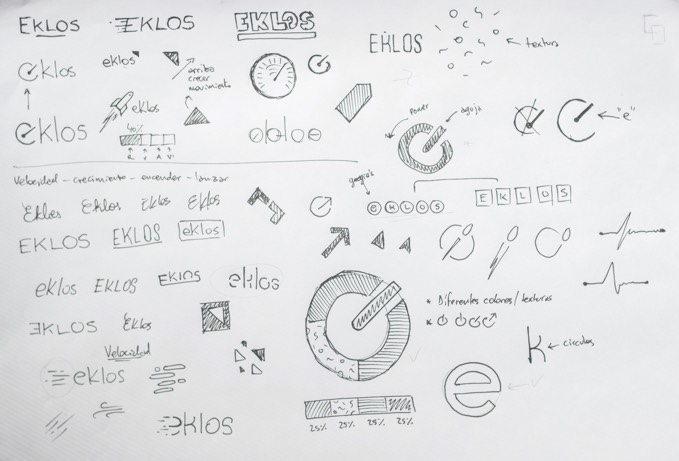 EKLOS
EKLOS
EKLOS
EKLOS
textura
eklos
eklos
arriba
crecer
movimiento
eklos
eklos
40%
R
A
V
eklos
Power
aguja
"e"
Velocidad - crecimiento - encender - lanzar
EKLOS
EKLOS
Eklos
Eklos
Eklos
Eklos
EKLOS
EKLOS
eklos
eklos
EKLOS
EKlOS
eklos
* Diferentes colores/texturas
*
EKLOS
Eklos
k
circulos
Velocidad
eklos
e
eklos
25% 25% 25% 25%